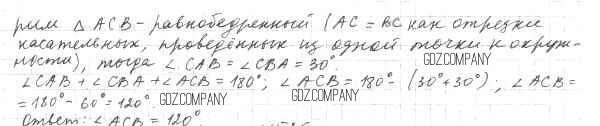 рим △ ACB - равнобедренный (AC = BC как отрезки
касательных, проведённых из одной точки к окруж-
ности), тогда ∠CAB = ∠CBA = 30°.
∠CAB + ∠CBA + ∠ACB = 180°; ∠ACB = 180° - (30°+30°); ∠ACB =
= 180° - 60° = 120°.
Ответ: ∠ACB = 120°.
GDZ.COMPANY
GDZ.COMPANY
GDZ.COMPANY